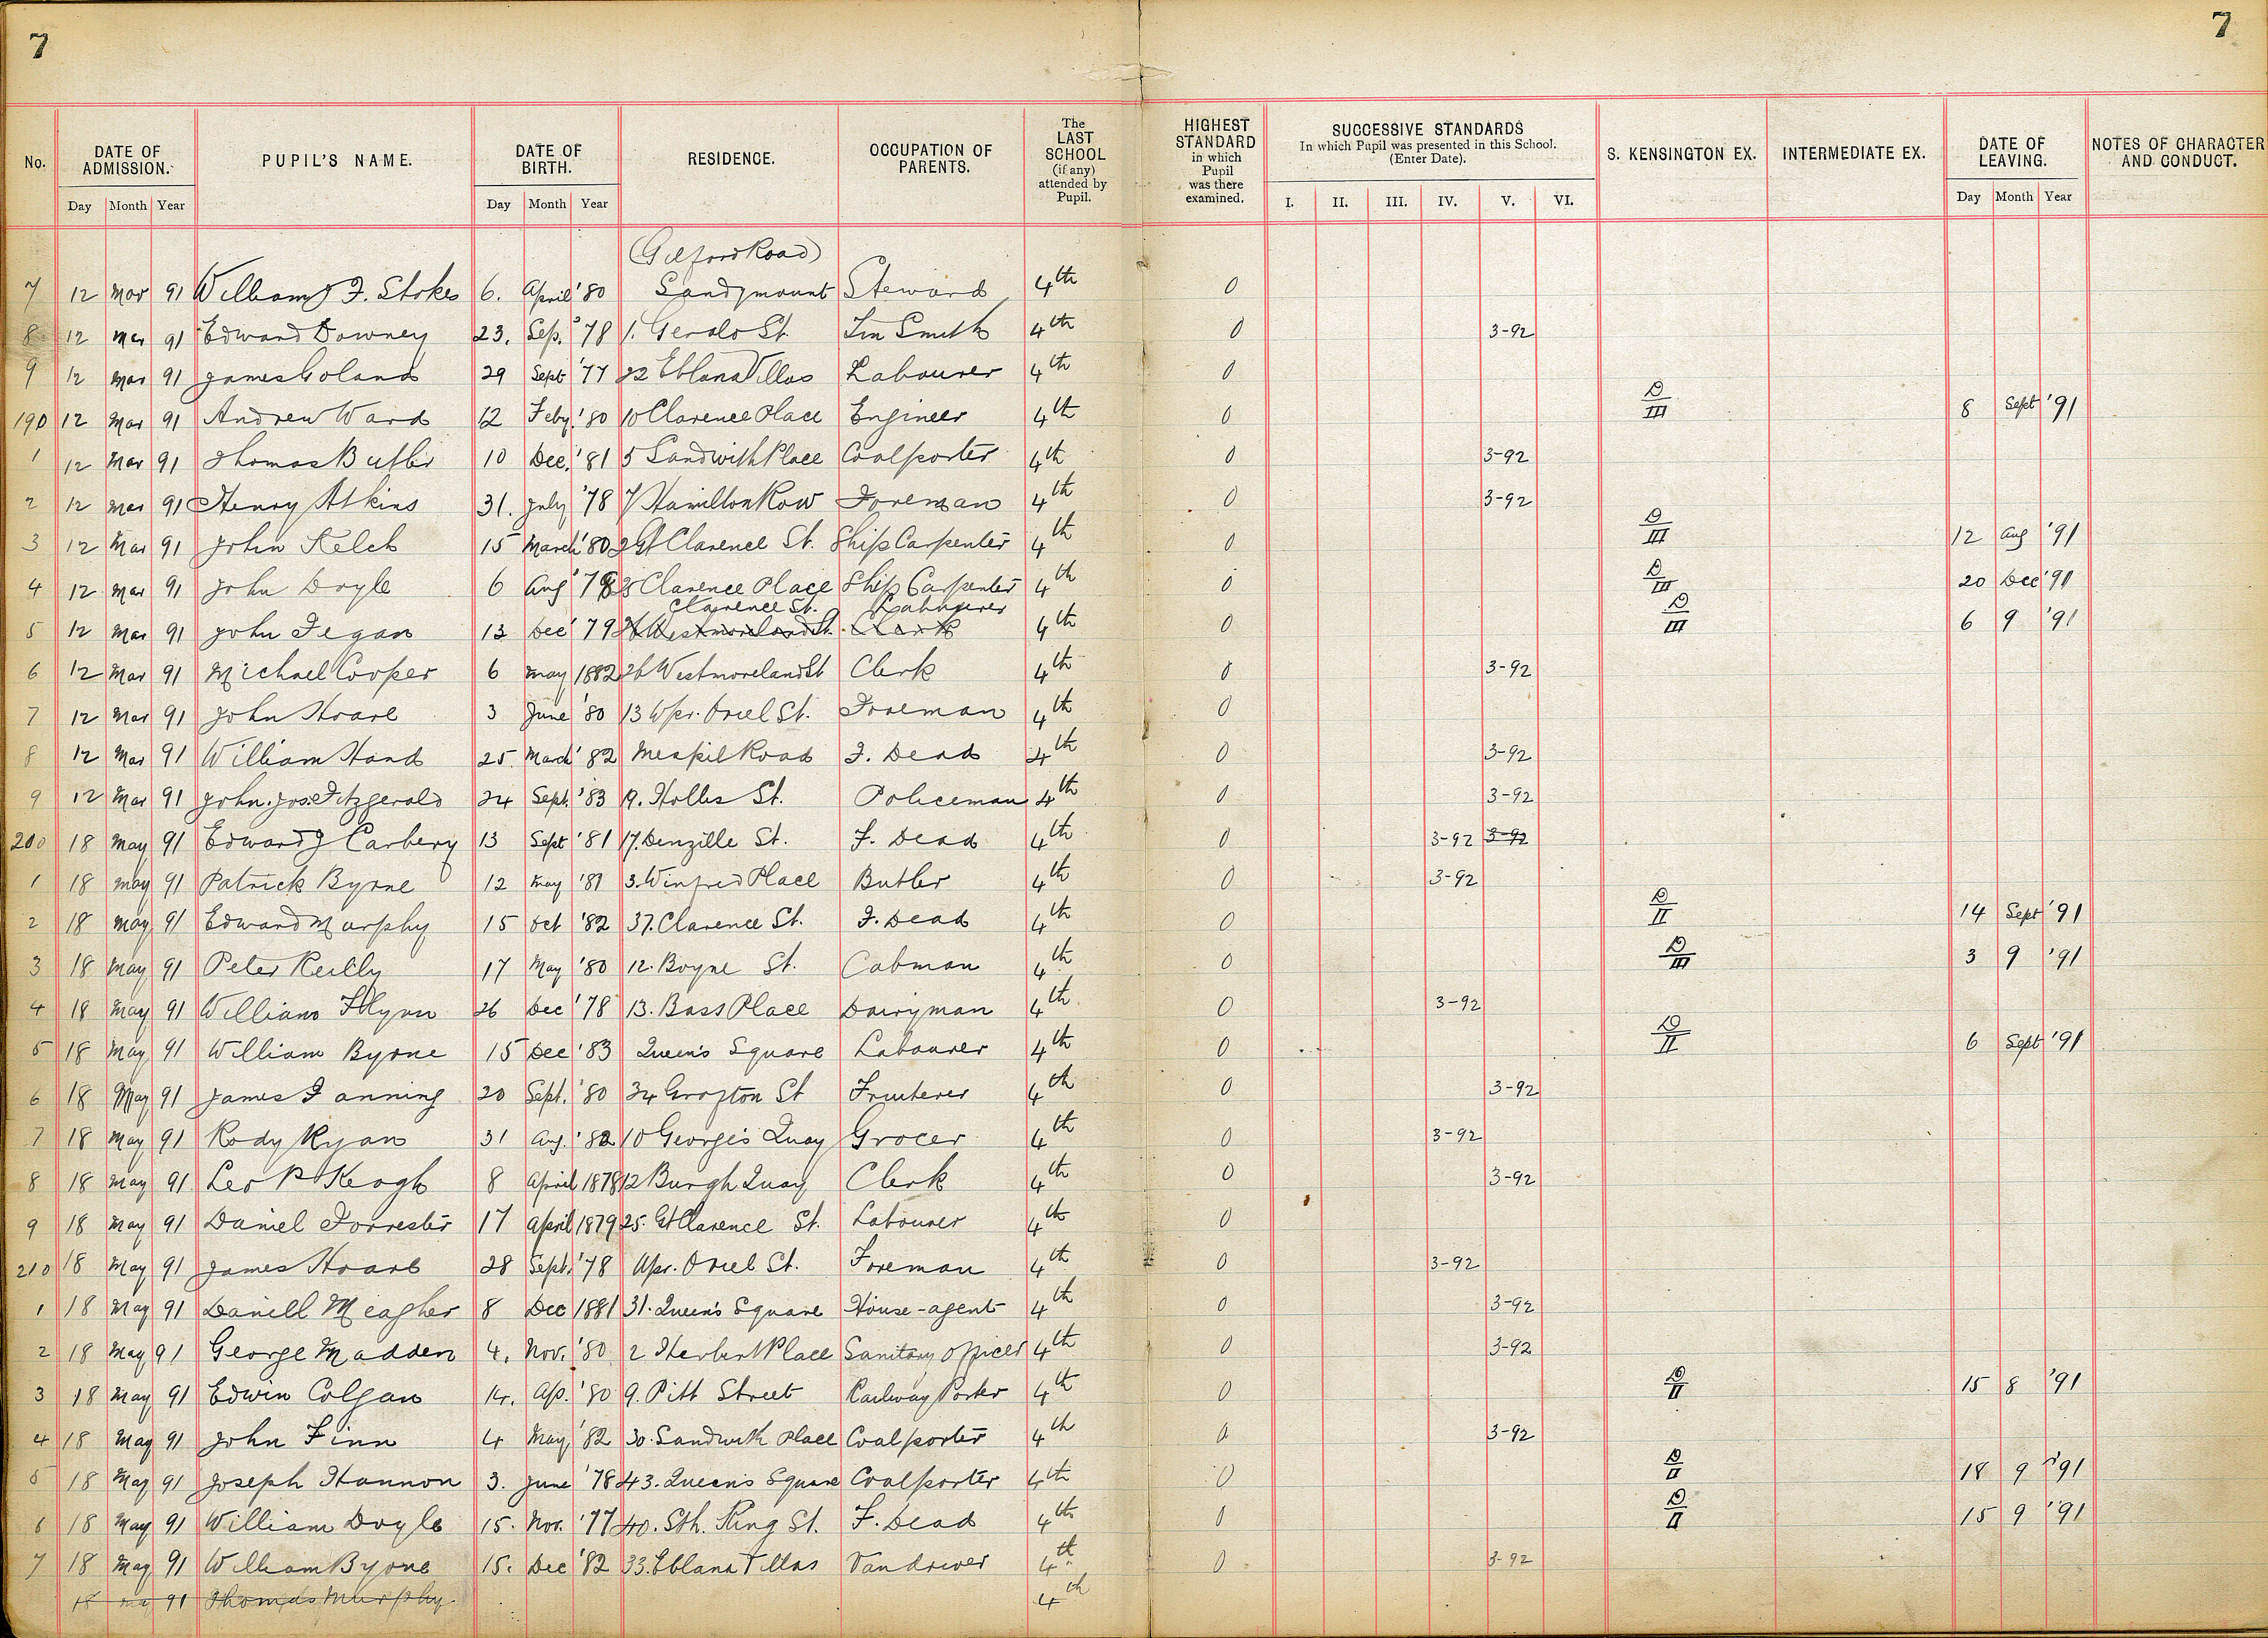 7 7
No. DATE OF ADMISSION. PUPIL'S NAME. DATE OF BIRTH. RESIDENCE. OCCUPATION OF PARENTS. The LAST SCHOOL (if any) attended by Pupil. HIGHEST STANDARD in which Pupil was there examined. SUCCESSIVE STANDARDS In which Pupil was presented in this School. (Enter Date). S. KENSINGTON EX. INTERMEDIATE EX. DATE OF LEAVING. NOTES OF CHARACTER AND CONDUCT.
Day Month Year Day Month Year I. II. III. IV. V. VI. Day Month Year
(Gilford Road)
7 12 Mar 91 William J. Stokes 6. April '80 Sandymount Steward 4th 0
8 12 Mar 91 Edward Downey 23. Sep. '78 1. Gerald St. Tin Smith 4th 0 3-92
9 12 Mar 91 James Goland 29 Sept '77 22 Eblana Villas Labourer 4th 0
190 12 Mar 91 Andrew Ward 12 Feby. '80 10 Clarence Place Engineer 4th 0 D/III 8 Sept '91
1 12 Mar 91 Thomas Butler 10 Dec. '81 5 Sandwith Place Coalporter 4th 0 3-92
2 12 Mar 91 Henry Atkins 31. July '78 7 Hamilton Row Foreman 4th 0 3-92
3 12 Mar 91 John Kelch 15 March '80 2 Gt Clarence St. Ship Carpenter 4th 0 D/III 12 Aug '91
4 12 Mar 91 John Doyle 6 Aug '78 3 Clarence Place Ship Carpenter 4th 0 D/III 20 Dec '91
Clarence St. Labourer
5 12 Mar 91 John Fegan 13 Dec '79 26 Westmoreland St. Clerk 4th 0 D/III 6 9 '91
6 12 Mar 91 Michael Cooper 6 May 1882 26 Westmoreland St Clerk 4th 0 3-92
7 12 Mar 91 John Hoare 3 June '80 13 Upr. Oriel St. Foreman 4th 0
8 12 Mar 91 William Hand 25. March '82 Mespil Road F. Dead 4th 0 3-92
9 12 Mar 91 John. Jos. Fitzgerald 24 Sept. '83 19. Holles St. Policeman 4th 0 3-92
200 18 May 91 Edward J Carbery 13 Sept '81 17. Denzille St. F. Dead 4th 0 3-92 3-92
1 18 May 91 Patrick Byrne 12 May '81 3. Winfred Place Butler 4th 0 3-92
2 18 May 91 Edward Murphy 15 Oct '82 37. Clarence St. F. Dead 4th 0 D/II 14 Sept '91
3 18 May 91 Peter Reilly 17 May '80 12. Boyne St. Cabman 4th 0 D/III 3 9 '91
4 18 May 91 William Flynn 26 Dec '78 13. Bass Place Dairyman 4th 0 3-92
5 18 May 91 William Byrne 15 Dec '83 Queen's Square Labourer 4th 0 D/II 6 Sept '91
6 18 May 91 James Fanning 20 Sept. '80 34 Grafton St Fruiterer 4th 0 3-92
7 18 May 91 Rody Ryan 31 Aug. '82 10 George's Quay Grocer 4th 0 3-92
8 18 May 91 Leo P Keogh 8 April 1878 12 Burgh Quay Clerk 4th 0 3-92
9 18 May 91 Daniel Forrester 17 April 1879 25. Gt Clarence St. Labourer 4th 0
210 18 May 91 James Hoare 28 Sept. '78 Upr. Oriel St. Foreman 4th 0 3-92
1 18 May 91 Daniell Meagher 8 Dec 1881 31. Queen's Square House-agent 4th 0 3-92
2 18 May 91 George Madden 4. Nov. '80 2 Herbert Place Sanitary Officer 4th 0 3-92
3 18 May 91 Edwin Colgan 14. Ap. '80 9. Pitt Street Railway Porter 4th 0 D/II 15 8 '91
4 18 May 91 John Finn 4 May '82 30. Sandwith Place Coalporter 4th 0 3-92
5 18 May 91 Joseph Hannon 3. June '78 43. Queen's Square Coalporter 4th 0 D/II 18 9 '91
6 18 May 91 William Doyle 15. Nov. '77 40. Sth. King St. F. Dead 4th 0 D/II 15 9 '91
7 18 May 91 William Byrne 15. Dec '82 33. Eblana Villas Vandriver 4th 0 3-92
18 May 91 Thomas Murphy. 4th